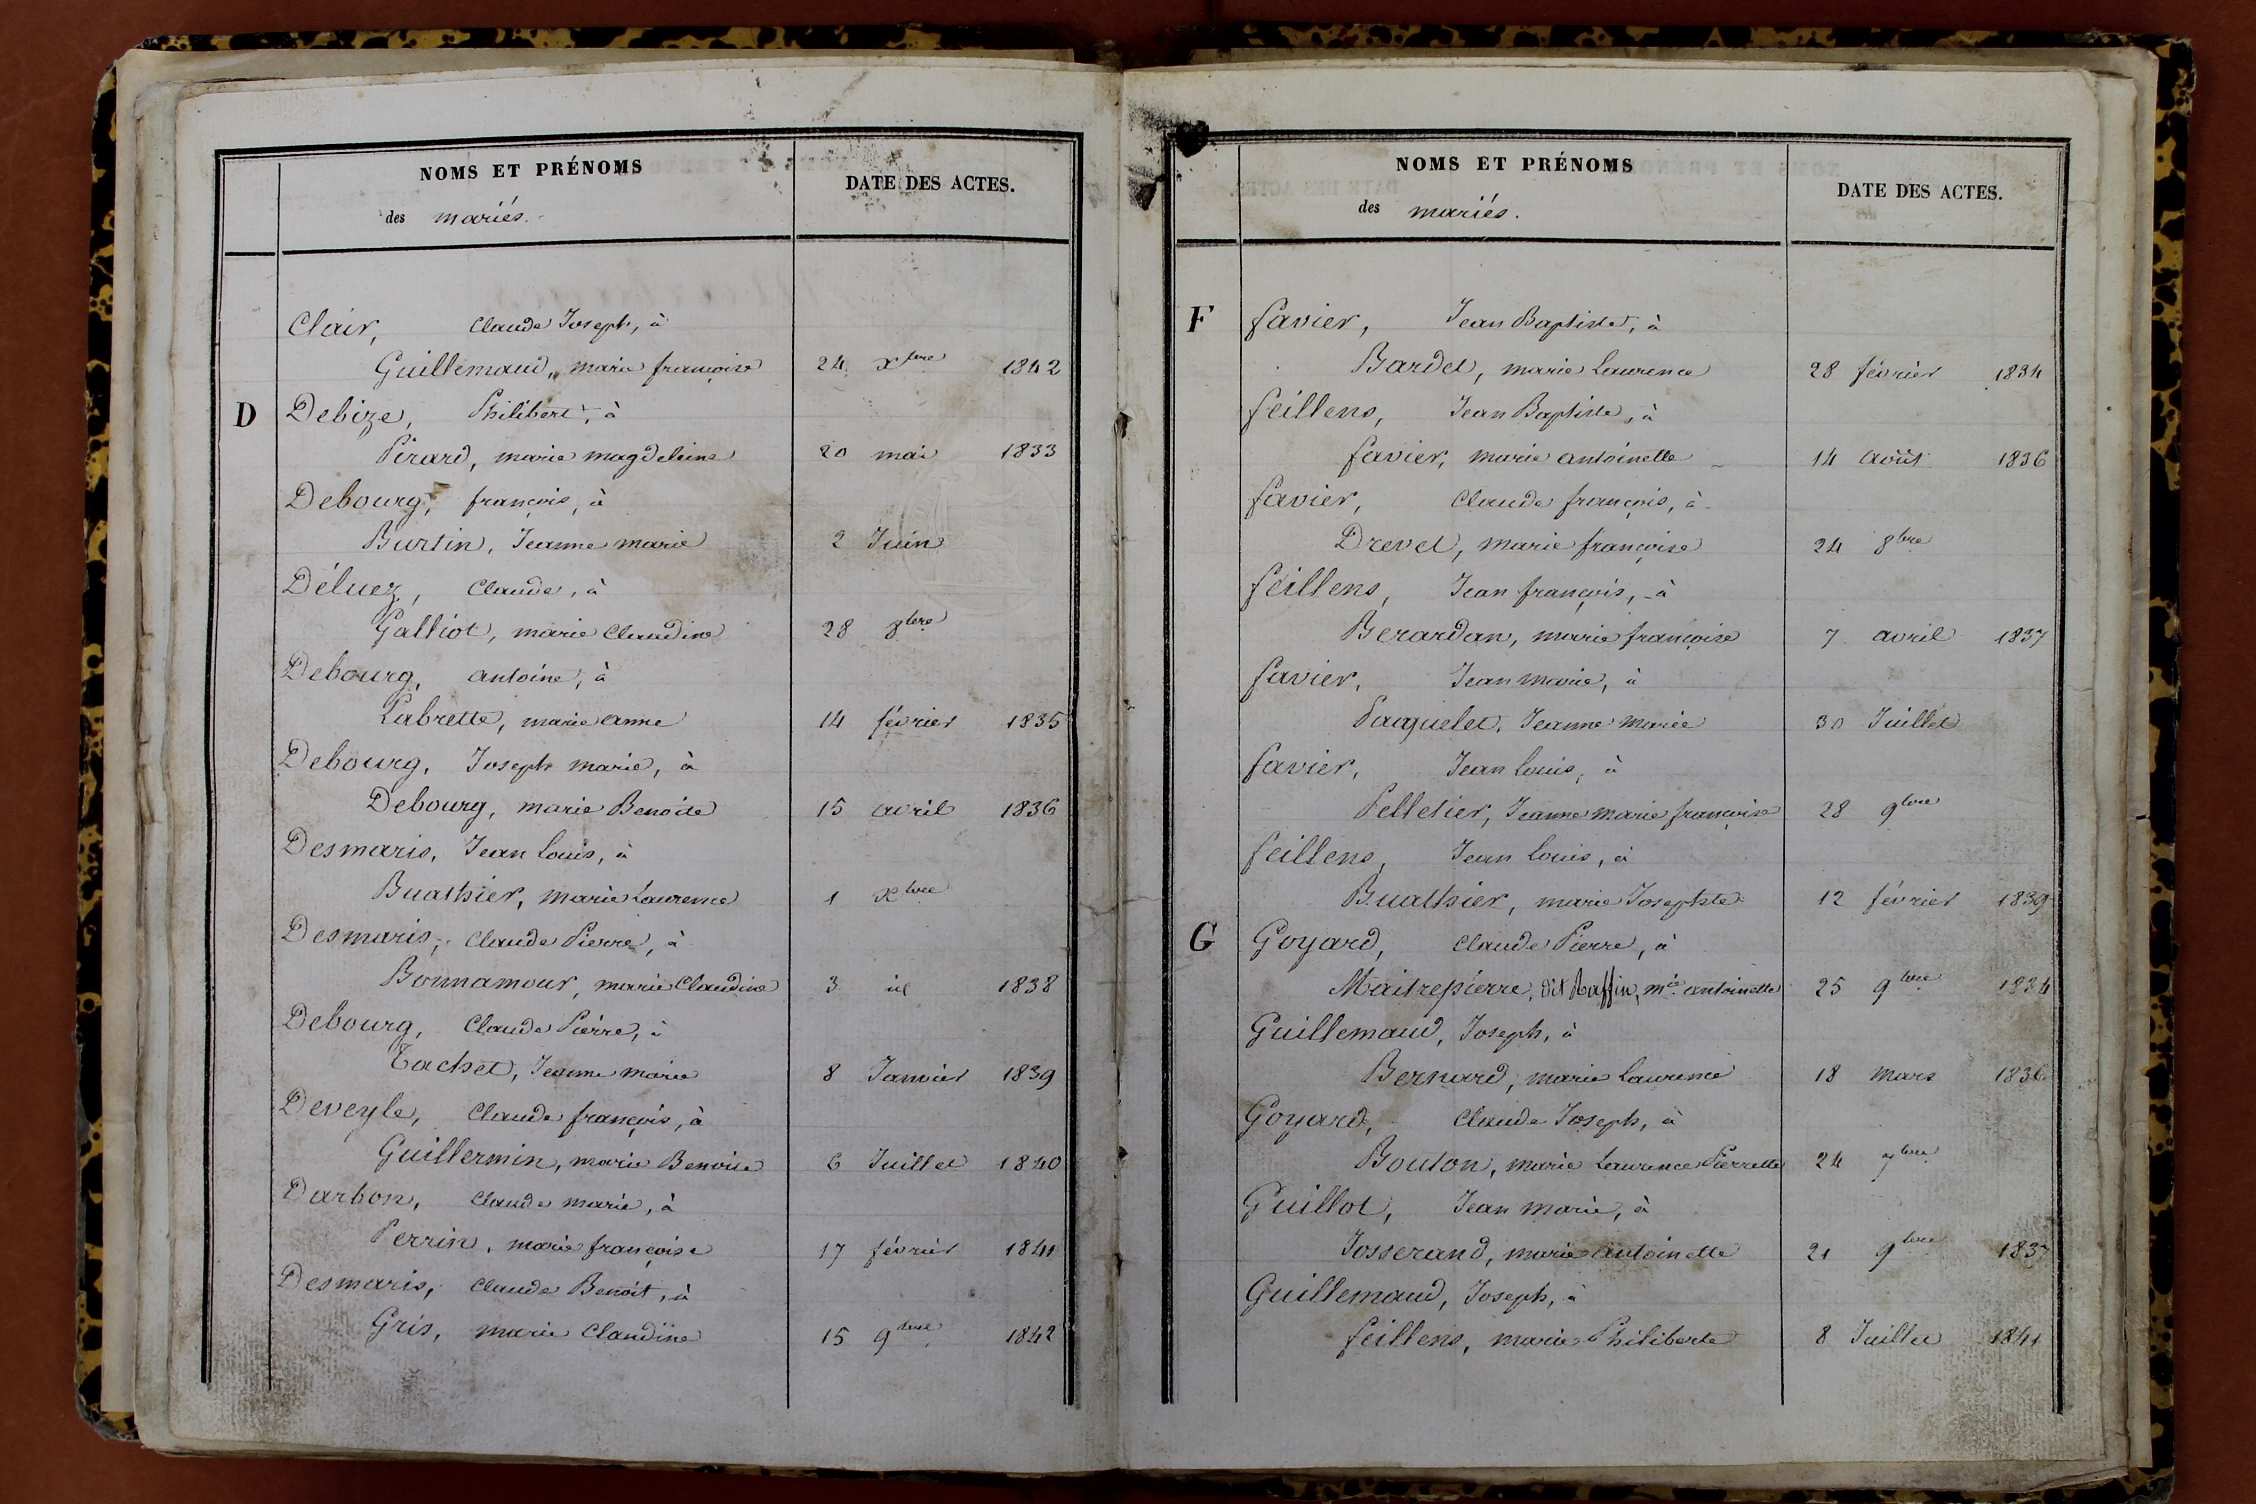 NOMS ET PRÉNOMS
des mariés.
DATE DES ACTES.
Clair, Claude Joseph, à
Guillemaud, marie françoise 24 Xbre 1842
D Debize, Philibert, à
Pérard, marie magdeleine 20 mai 1833
Debourg, françois, à
Burtin, Jeanne marie 2 Juin
Déluez, Claude, à
Galliot, marie Claudine 28 8bre
Debourg, antoine, à
Labrette, marie anne 14 février 1835
Debourg, Joseph marie, à
Debourg, marie Benoite 15 avril 1836
Desmaris, Jean Louis, à
Buathier, marie Laurence 1 Xbre
Desmaris, Claude Pierre, à
Bonnamour, marie Claudine 3 id 1838
Debourg, Claude Pierre, à
Tachet, Jeanne marie 8 Janvier 1839
Deveyle, Claude françois, à
Guillermin, marie Benoite 6 Juillet 1840
Darbon, Claude marie, à
Perrin, marie françoise 17 février 1841
Desmaris, Claude Benoit, à
Gris, marie Claudine 15 9bre 1842
NOMS ET PRÉNOMS
des mariés.
DATE DES ACTES.
F favier, Jean Baptiste, à
Bardet, marie Laurence 28 février 1834
feillens, Jean Baptiste, à
favier, marie antoinette 14 août 1836
favier, Claude françois, à
Drevet, marie françoise 24 8bre
feillens, Jean françois, à
Berardan, marie françoise 7 avril 1837
favier, Jean marie, à
Pacquelet, Jeanne marie 30 Juillet
favier, Jean Louis, à
Pelletier, Jeanne marie françoise 28 9bre
feillens, Jean Louis, à
Buathier, marie Josephte 12 février 1839
G Goyard, Claude Pierre, à
Maitrepierre, dit Raffin, mie antoinette 25 9bre 1834
Guillemaud, Joseph, à
Bernard, marie Laurence 18 mars 1836
Goyard, Claude Joseph, à
Bouton, marie Laurence Pierrette 24 7bre
Guillot, Jean marie, à
Josserand, marie antoinette 21 9bre 1837
Guillemaud, Joseph, à
feillens, marie Philiberte 8 Juillet 1841